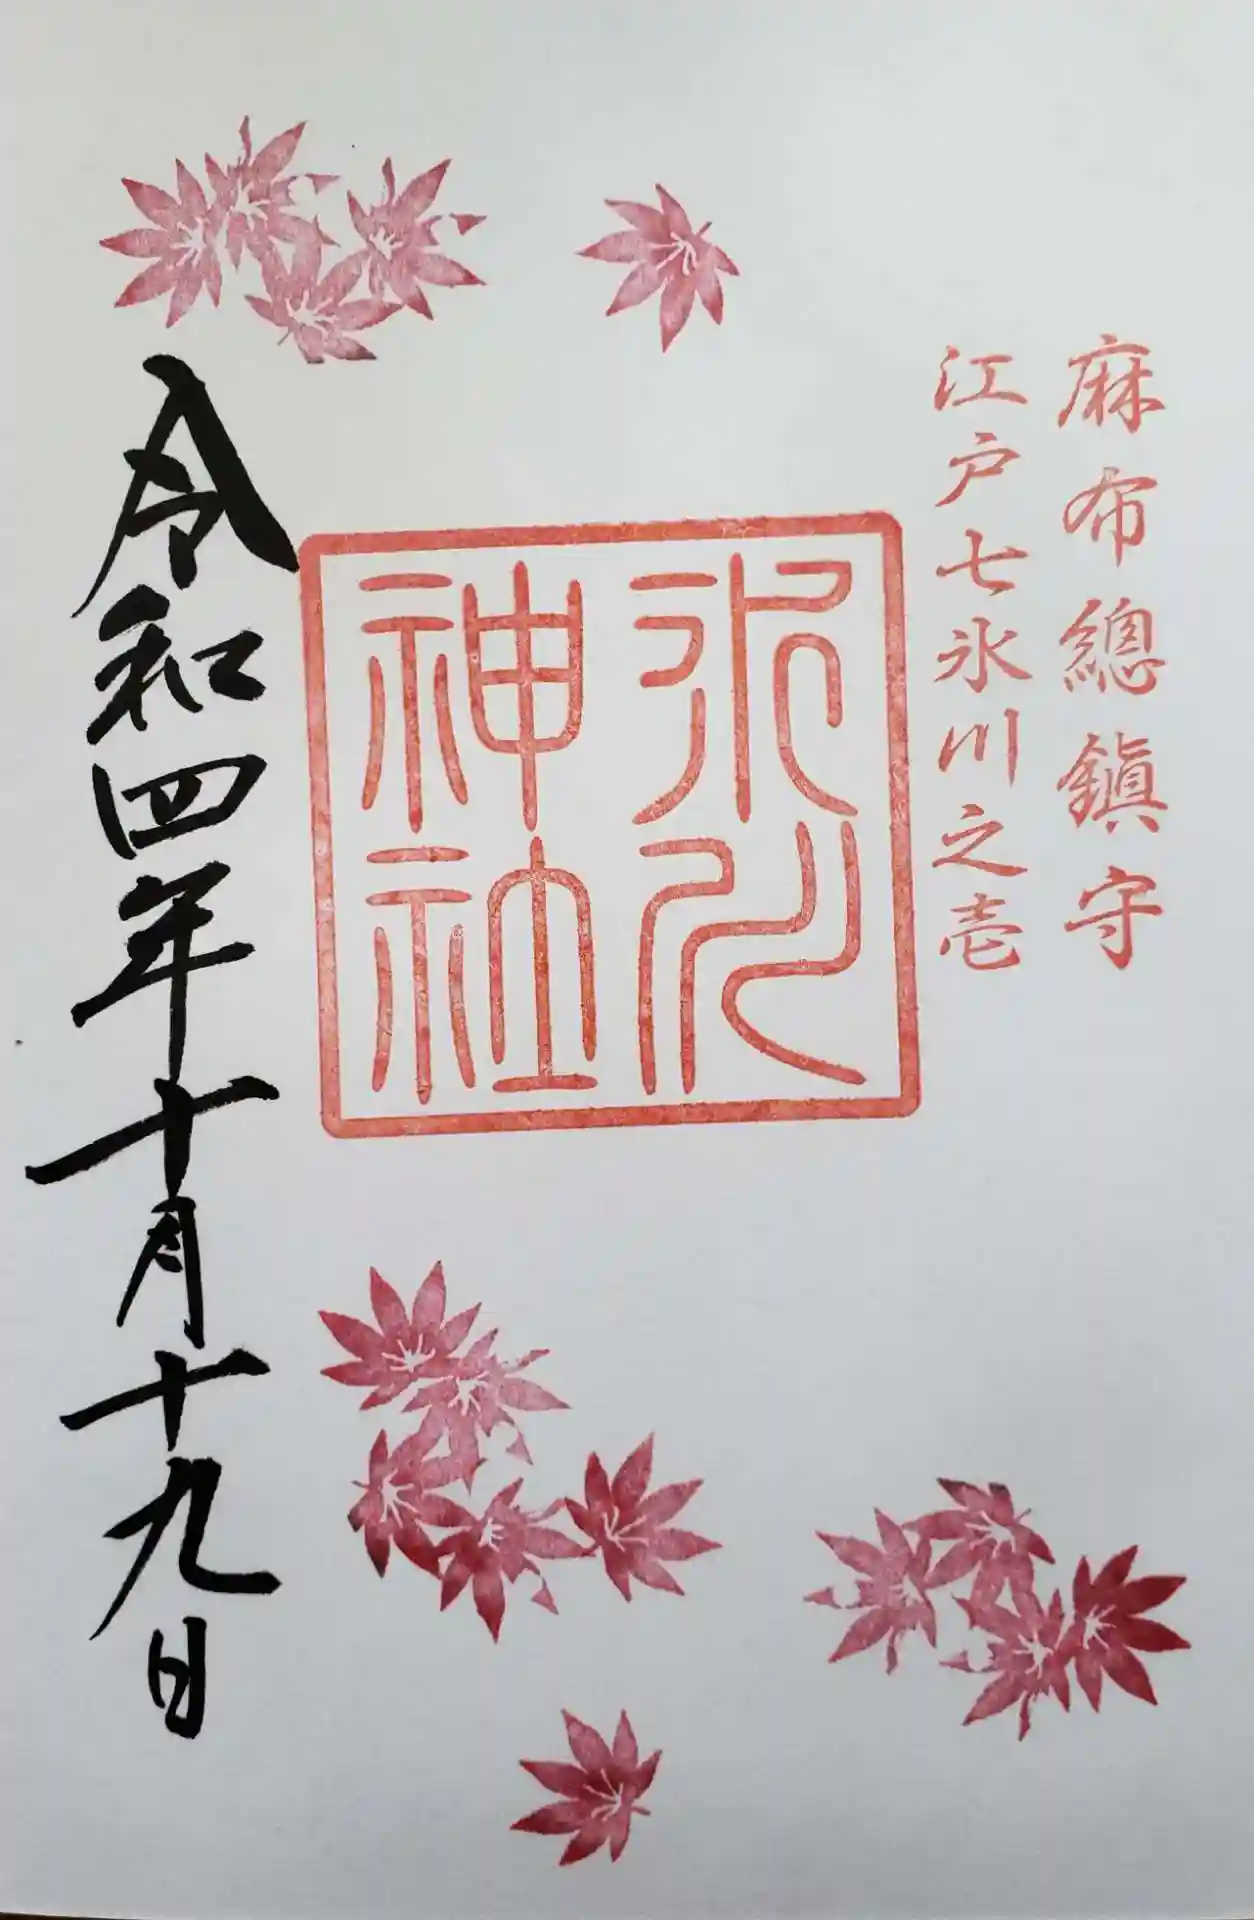 麻布總鎭守
江戸七氷川之壱
氷川
神社
令和四年十月十九日